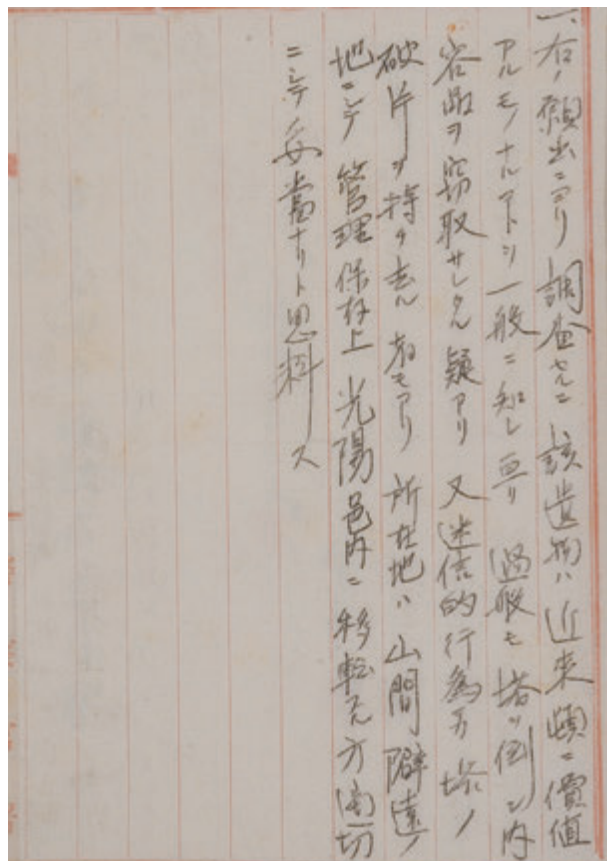 一、右ノ願出ニヨリ調査セルニ該遺物ハ近来頗ニ價値
アルモノナルコトヲ一般ニ知レ亘リ過般モ塔ヲ倒シ内
容品ヲ窃取サレタル疑アリ又迷信的行為ヨリ塔ノ
破片ヲ持チ去ル者モアリ所在地ハ山間僻遠ノ
地ニシテ管理保存上光陽邑内ニ移転スル方適切
ニシテ妥當ナリト思料ス